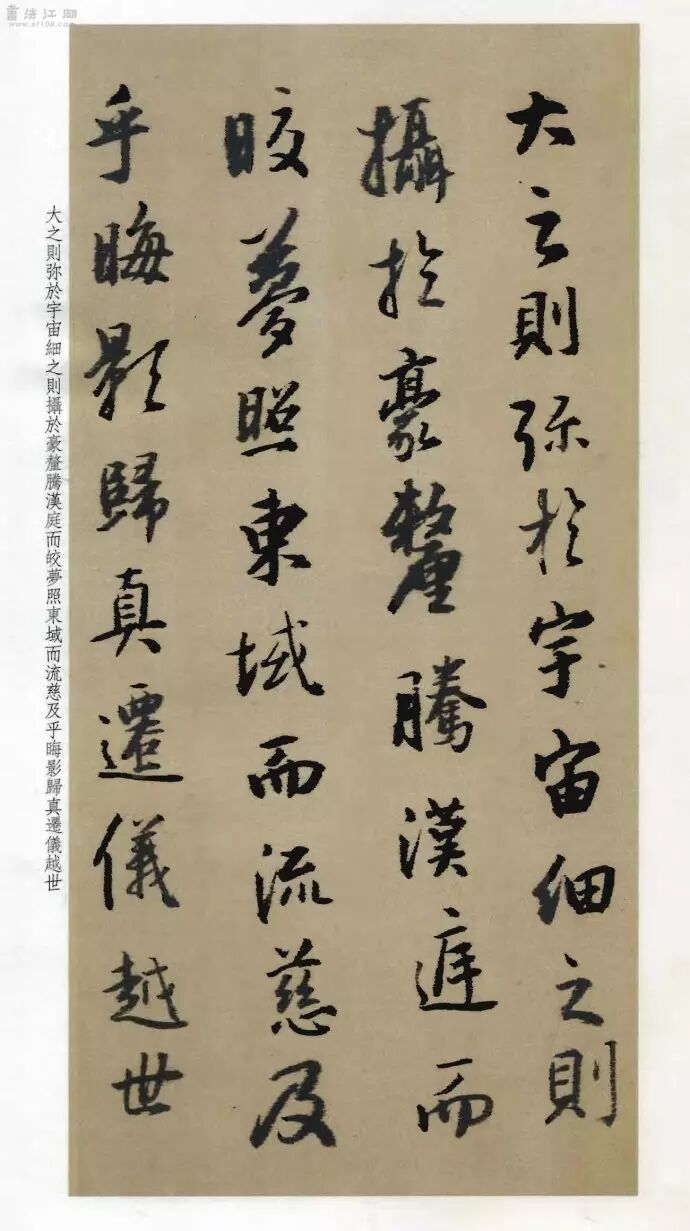 大之則弥於宇宙細之則
攝於豪釐騰漢庭而
皎夢照東域而流慈及
乎晦影歸真遷儀越世
大之則弥於宇宙細之則攝於豪釐騰漢庭而皎夢照東域而流慈及乎晦影歸真遷儀越世
書法江湖
www.sf108.com